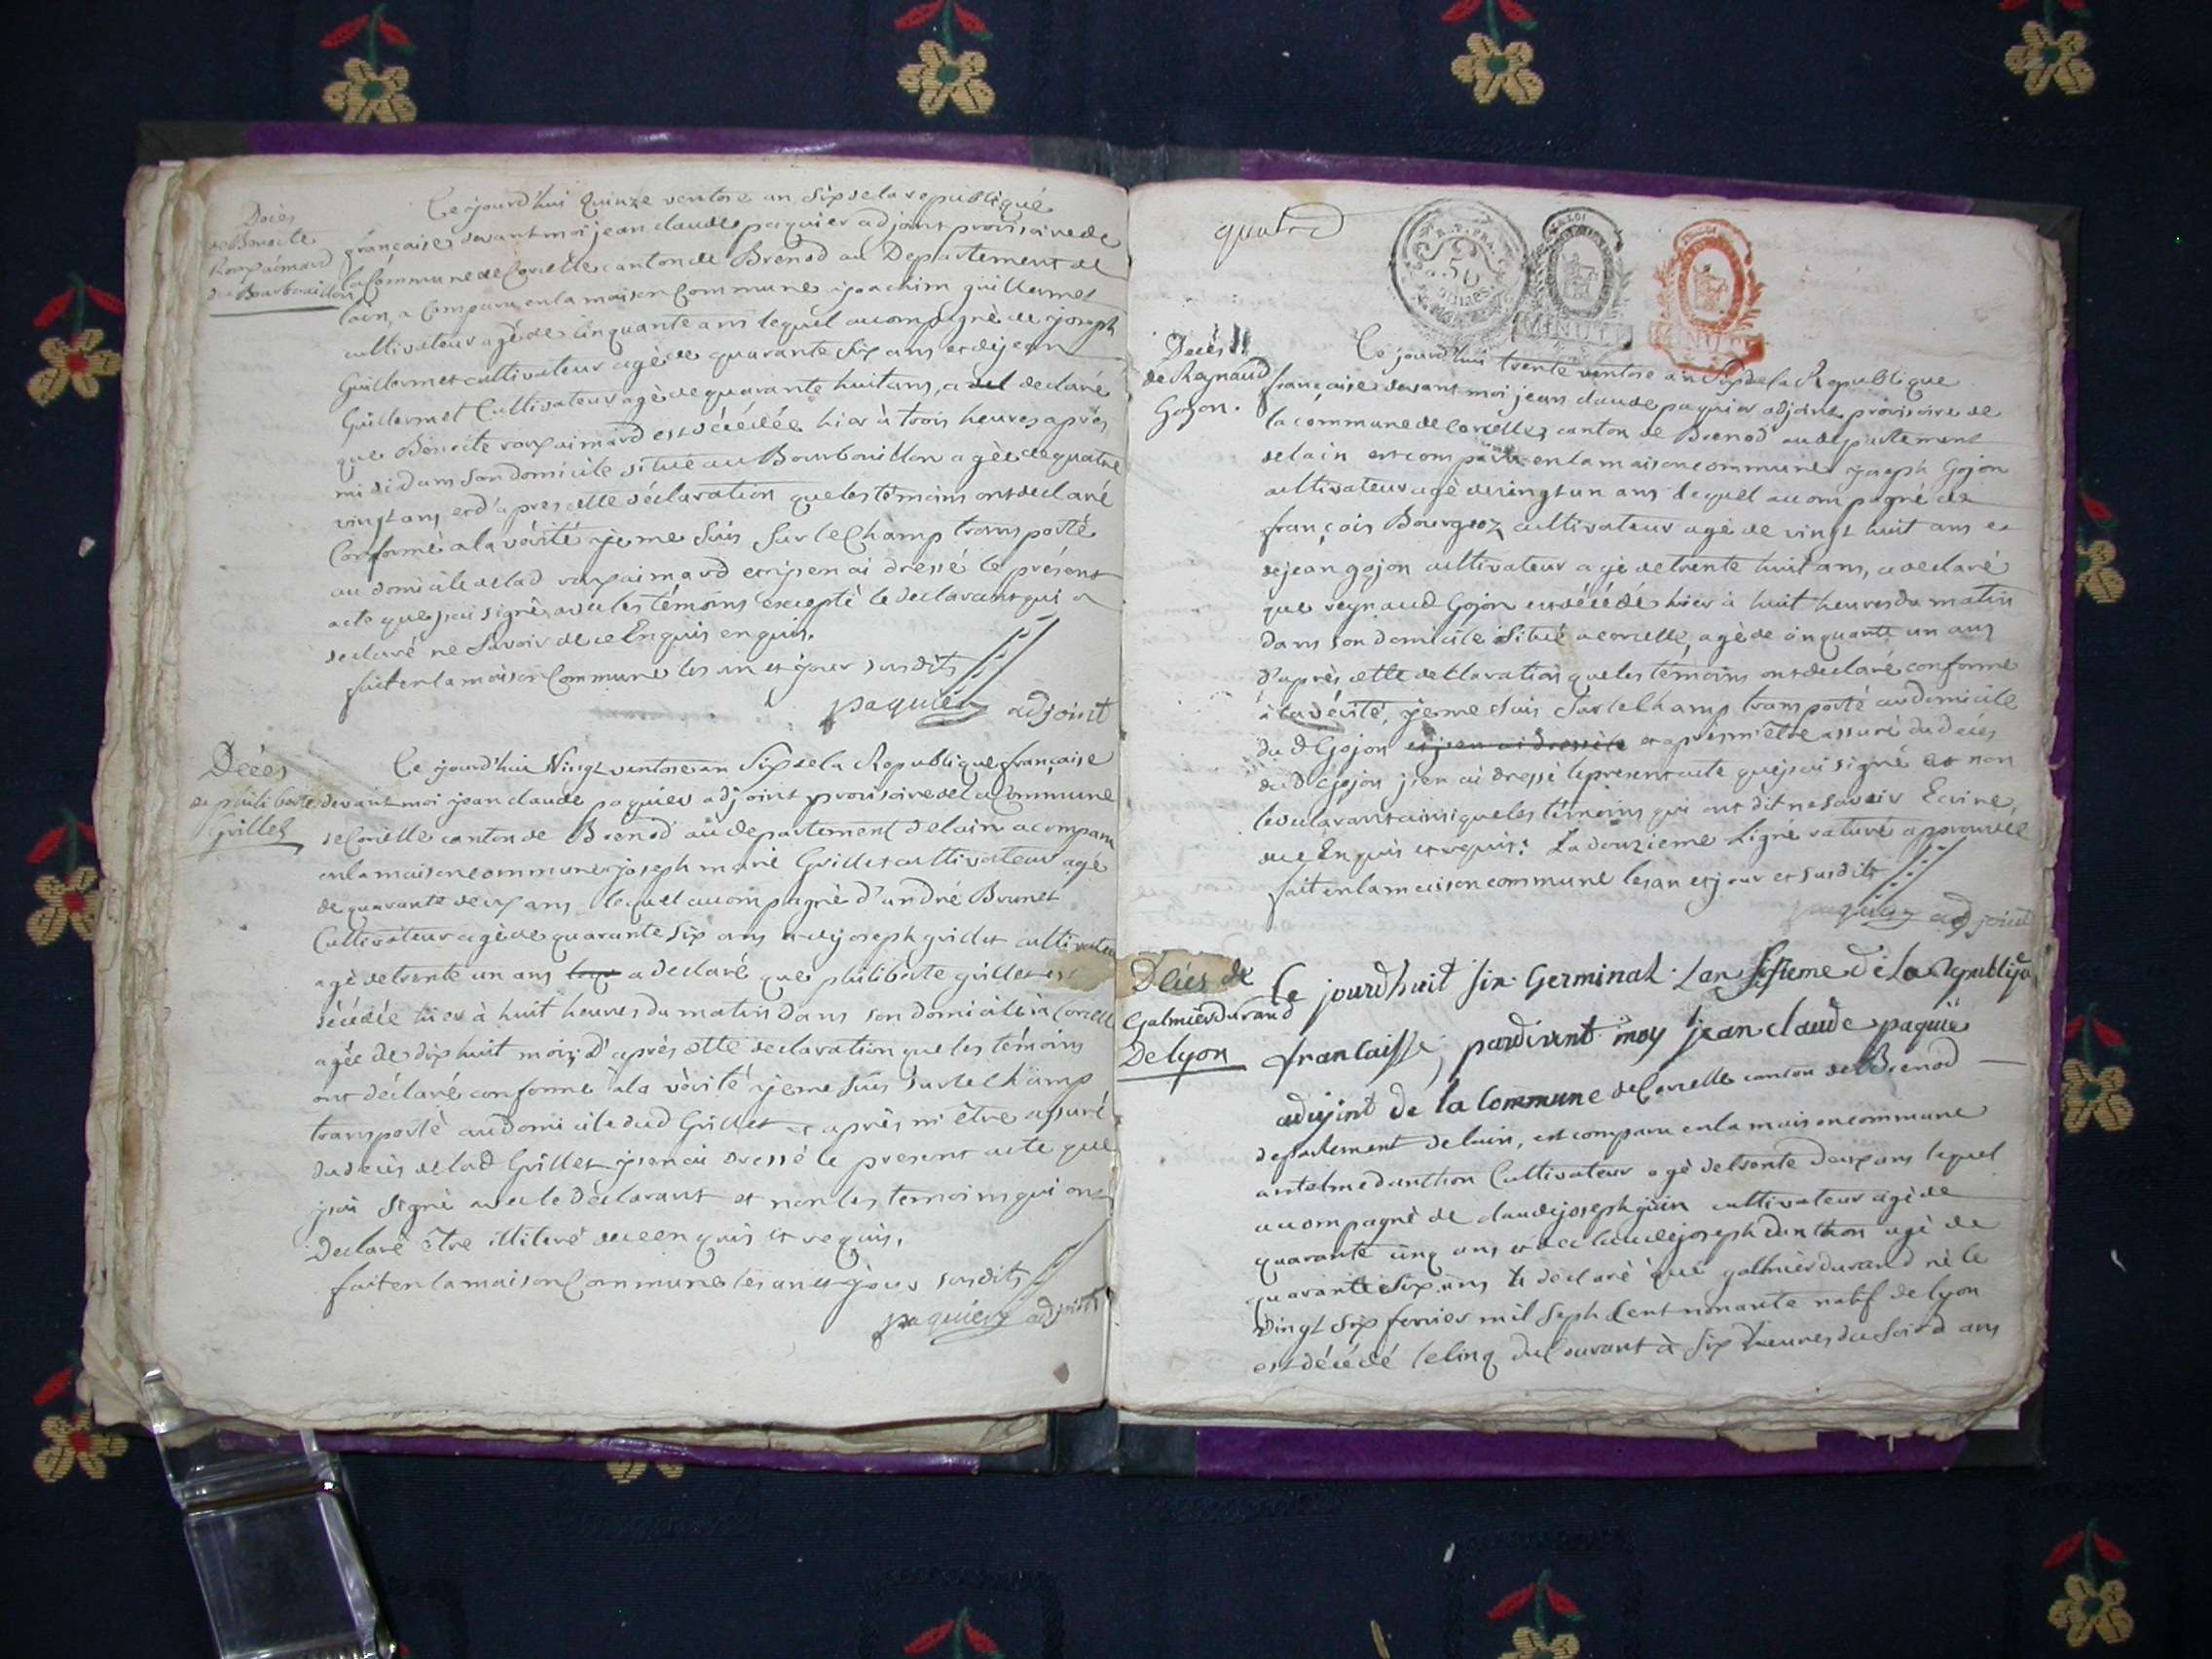 Décès
de Benoite
du Bourbouillon
Ce jourd'hui Quinze ventose an Six de la republique
française devant moi jean claude paquier adjoint provisoire de
la Commune de Corcelle canton de Brenod au Departement de
lain, a Comparu en la maison Commune joachim guillermet
cultivateur agé de cinquante ans lequel accompagné de joseph
Guillermet cultivateur agé de quarante Six ans et de jean
Guillermet Cultivateur agé de quarante huit ans, a declaré
que Benoite est décédée hier à trois heures après
midi dans son domicile situé au Bourbouillon agée de quatre
vingt ans, et d'apres cette déclaration que les témoins ont declaré
Conforme a la vérité je me suis sur le Champ transporté
au domicile de lad et j'en ai dressé le présent
acte que j'ai signé avec les témoins excepté le declarant qui a
declaré ne savoir de ce Enquis
fait en la maison Commune les an et jour susdits
paquier adjoint
Décès
de philiberte
Grillet
Ce jourd'hui Vingt ventose an Six de la Republique française
devant moi jean claude paquier adjoint provisoire de la Commune
de Corcelle canton de Brenod au departement de lain a comparu
en la maison commune joseph marie Grillet cultivateur agé
de quarante deux ans lequel accompagné d'andré Brunet
Cultivateur agé de quarante six ans et de joseph grillet cultivateur
agé de trente un ans a declaré que philiberte grillet est
décédée hier à huit heures du matin dans son domicile à Corcelle
agée de dix huit mois, d'après cette declaration que les témoins
ont déclaré conforme à la vérité je me suis sur le champ
transporté au domicile dud Grillet et après m'être assuré
du décès de lad Grillet j'en ai dressé le present acte que
j'ai signé avec le declarant et non les temoins qui ont
Declaré être illiteré de ce enquis et requis.
fait en la maison Commune les an et jour susdits
paquier adjoint
quatre
R. P. FRA
50
MINUTE
MINUTE
Décès
de Raynaud
Gojon.
Ce jourd'hui trente ventose an Six de la Republique
française devant moi jean claude paquier adjoint provisoire de
la commune de Corcelle canton de Brenod au departement
de lain est comparu en la maison commune joseph Gojon
cultivateur agé de vingt un ans lequel accompagné de
françois Bourgeoz cultivateur agé de vingt huit ans et
de jean gojon cultivateur agé de trente huit ans, a declaré
que reynaud Gojon est décédé hier à huit heures du matin
dans son domicile Situé a corcelle, agé de cinquante un ans
d'après cette declaration que les témoins ont declaré conforme
à la vérité, je me suis sur le Champ transporté au domicile
du d Gojon et j'en ai dressé le et apres m'être assuré du decès
du d Gojon j'en ai dressé le present acte que j'ai signé et non
le declarant ainsi que les témoins qui ont dit ne savoir Ecrire,
de ce Enquis et requis. La douzieme Ligne raturé approuvée
fait en la maison commune les an et jour et susdits
paquier adjoint
Décès de
Galmier durand
De lyon
Ce jourdhuit six Germinal Lan sisieme de La republique
francaisse, pardevent moy jean claude paquié
adiejint de la Commune de Corcelle canton de Brenod
departement de lain, est comparu en la maison commune
antelme danthon Cultivateur agé de trente deux ans lequel
accompagné de claude joseph cultivateur agé de
quarante cinq ans et de claude joseph danthon agé de
quarante six ans a declaré que galmier durand né le
vingt six fevrier mil sept cent nonante natif de lyon
est décédé le cinq du courant à six heures du soir d ans